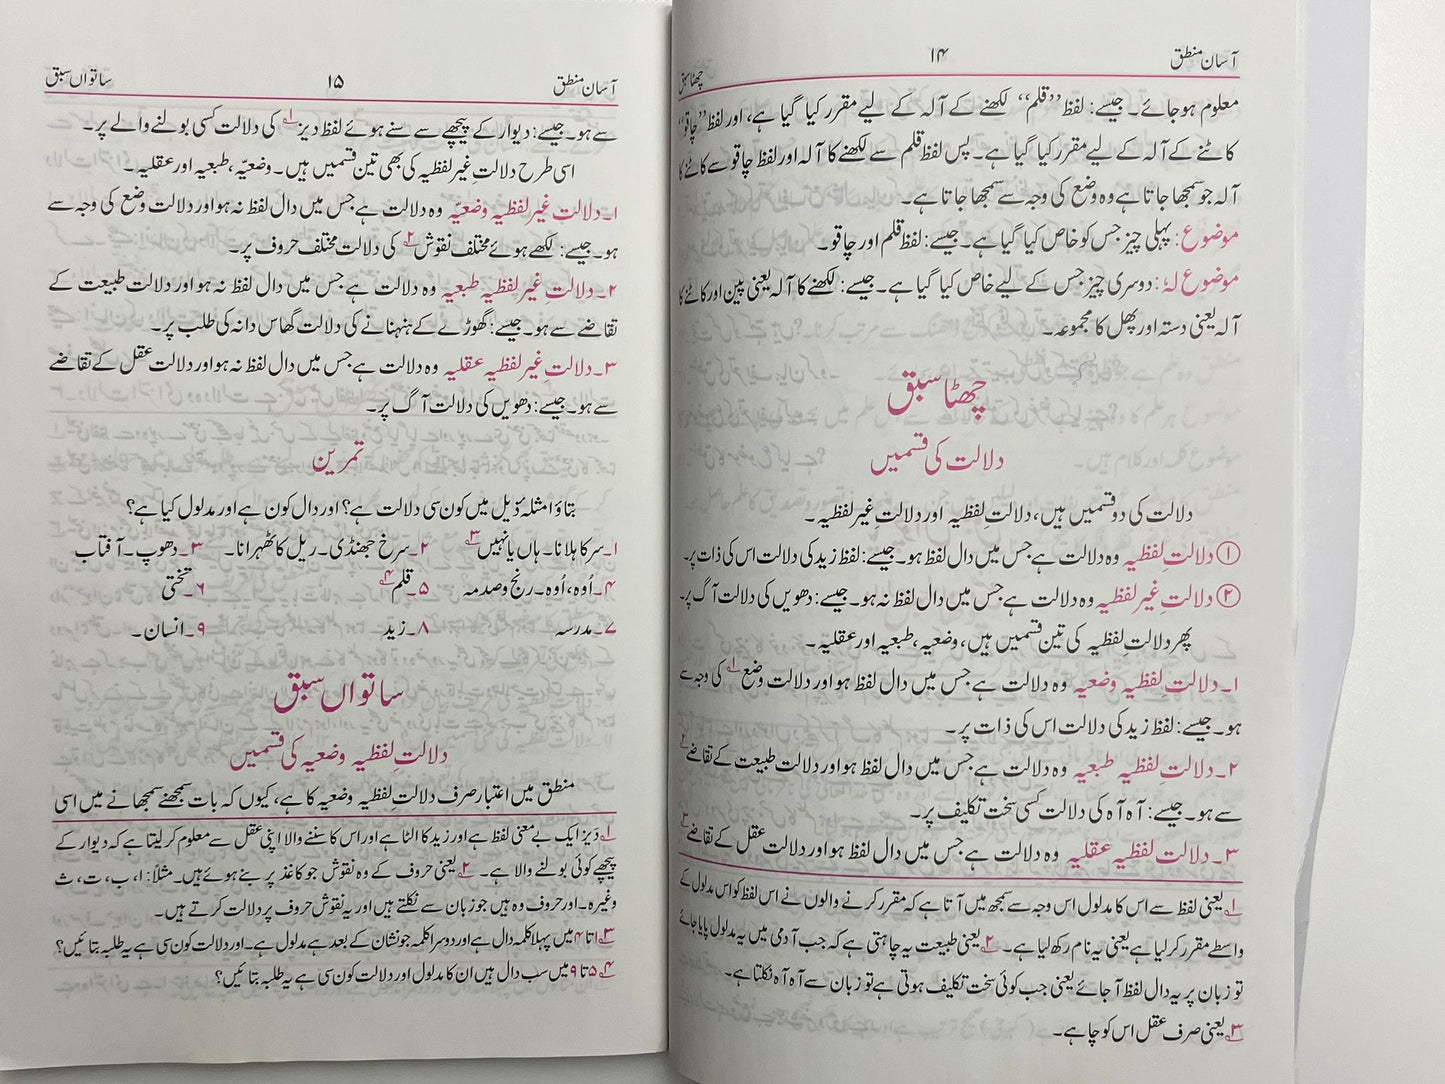 آسان منطق ۱۴ چھٹا سبق
معلوم ہو جائے۔ جیسے: لفظ ’’قلم‘‘ لکھنے کے آلہ کے لیے مقرر کیا گیا ہے، اور لفظ ’’چاقو‘‘
کاٹنے کے آلہ کے لیے مقرر کیا گیا ہے۔ پس لفظ قلم سے لکھنے کا آلہ اور لفظ چاقو سے کاٹنے کا
آلہ جو سمجھا جاتا ہے وہ وضع کی وجہ سے سمجھا جاتا ہے۔
موضوع: پہلی چیز جس کو خاص کیا گیا ہے۔ جیسے: لفظ قلم اور چاقو۔
موضوع لہٗ: دوسری چیز جس کے لیے خاص کیا گیا ہے۔ جیسے: لکھنے کا آلہ یعنی پین اور کاٹنے کا
آلہ یعنی دستہ اور پھل کا مجموعہ۔
چھٹا سبق
دلالت کی قسمیں
دلالت کی دو قسمیں ہیں، دلالتِ لفظیہ اور دلالتِ غیر لفظیہ۔
① دلالتِ لفظیہ وہ دلالت ہے جس میں دال لفظ ہو۔ جیسے: لفظ زید کی دلالت اس کی ذات پر۔
② دلالتِ غیر لفظیہ وہ دلالت ہے جس میں دال لفظ نہ ہو۔ جیسے: دھویں کی دلالت آگ پر۔
پھر دلالتِ لفظیہ کی تین قسمیں ہیں، وضعیہ، طبعیہ اور عقلیہ۔
۱۔ دلالتِ لفظیہ وضعیہ وہ دلالت ہے جس میں دال لفظ ہو اور دلالت وضع ۱؎ کی وجہ سے
ہو۔ جیسے: لفظ زید کی دلالت اس کی ذات پر۔
۲۔ دلالتِ لفظیہ طبعیہ وہ دلالت ہے جس میں دال لفظ ہو اور دلالت طبیعت کے تقاضے ۲؎
سے ہو۔ جیسے: آہ آہ کی دلالت کسی سخت تکلیف پر۔
۳۔ دلالتِ لفظیہ عقلیہ وہ دلالت ہے جس میں دال لفظ ہو اور دلالت عقل کے تقاضے ۳؎
۱؎ یعنی لفظ سے اس کا مدلول اس وجہ سے سمجھ میں آتا ہے کہ مقرر کرنے والوں نے اس لفظ کو اس مدلول کے
واسطے مقرر کر لیا ہے یعنی یہ نام رکھ لیا ہے۔ ۲؎ یعنی طبیعت یہ چاہتی ہے کہ جب آدمی میں یہ مدلول پایا جائے
تو زبان پر یہ دال لفظ آ جائے یعنی جب کوئی سخت تکلیف ہوتی ہے تو زبان سے آہ آہ نکلتا ہے۔
۳؎ یعنی صرف عقل اس کو چاہے۔
آسان منطق ۱۵ ساتواں سبق
سے ہو۔ جیسے: دیوار کے پیچھے سے سنے ہوئے لفظ دیز ۱؎ کی دلالت کسی بولنے والے پر۔
اسی طرح دلالتِ غیر لفظیہ کی بھی تین قسمیں ہیں۔ وضعیّہ، طبعیہ اور عقلیہ۔
۱۔ دلالتِ غیر لفظیہ وضعیّہ وہ دلالت ہے جس میں دال لفظ نہ ہو اور دلالت وضع کی وجہ سے
ہو۔ جیسے: لکھے ہوئے مختلف نقوش ۲؎ کی دلالت مختلف حروف پر۔
۲۔ دلالتِ غیر لفظیہ طبعیہ وہ دلالت ہے جس میں دال لفظ نہ ہو اور دلالت طبیعت کے
تقاضے سے ہو۔ جیسے: گھوڑے کے ہنہنانے کی دلالت گھاس دانہ کی طلب پر۔
۳۔ دلالتِ غیر لفظیہ عقلیہ وہ دلالت ہے جس میں دال لفظ نہ ہو اور دلالت عقل کے تقاضے
سے ہو۔ جیسے: دھویں کی دلالت آگ پر۔
تمرین
بتاؤ امثلہ ذیل میں کون سی دلالت ہے؟ اور دال کون ہے اور مدلول کیا ہے؟
۱۔ سر کا ہلانا۔ ہاں یا نہیں ۳؎ ۲۔ سرخ جھنڈی۔ ریل کا ٹھہرانا۔ ۳۔ دھوپ۔ آفتاب
۴۔ اُوہ، اُوہ۔ رنج و صدمہ ۵۔ قلم ۴؎ ۶۔ تختی
۷۔ مدرسہ ۸۔ زید ۹۔ انسان۔
ساتواں سبق
دلالتِ لفظیہ وضعیہ کی قسمیں
منطق میں اعتبار صرف دلالتِ لفظیہ وضعیہ کا ہے، کیوں کہ بات سمجھنے سمجھانے میں اسی
۱؎ دَیز ایک بے معنی لفظ ہے اور زید کا الٹا ہے اور اس کا سننے والا اپنی عقل سے معلوم کر لیتا ہے کہ دیوار کے
پیچھے کوئی بولنے والا ہے۔ ۲؎ یعنی حروف کے وہ نقوش جو کاغذ پر بنے ہوئے ہیں۔ مثلاً: ا، ب، ت، ث
وغیرہ۔ اور حروف وہ ہیں جو زبان سے نکلتے ہیں اور یہ نقوش حروف پر دلالت کرتے ہیں۔
۳؎ ۱ تا ۴ میں پہلا کلمہ دال ہے اور دوسرا کلمہ جو نشان کے بعد ہے مدلول ہے۔ اور دلالت کون سی ہے یہ طلبہ بتائیں؟
۴؎ ۵ تا ۹ میں سب دال ہیں ان کا مدلول اور دلالت کون سی ہے یہ طلبہ بتائیں؟